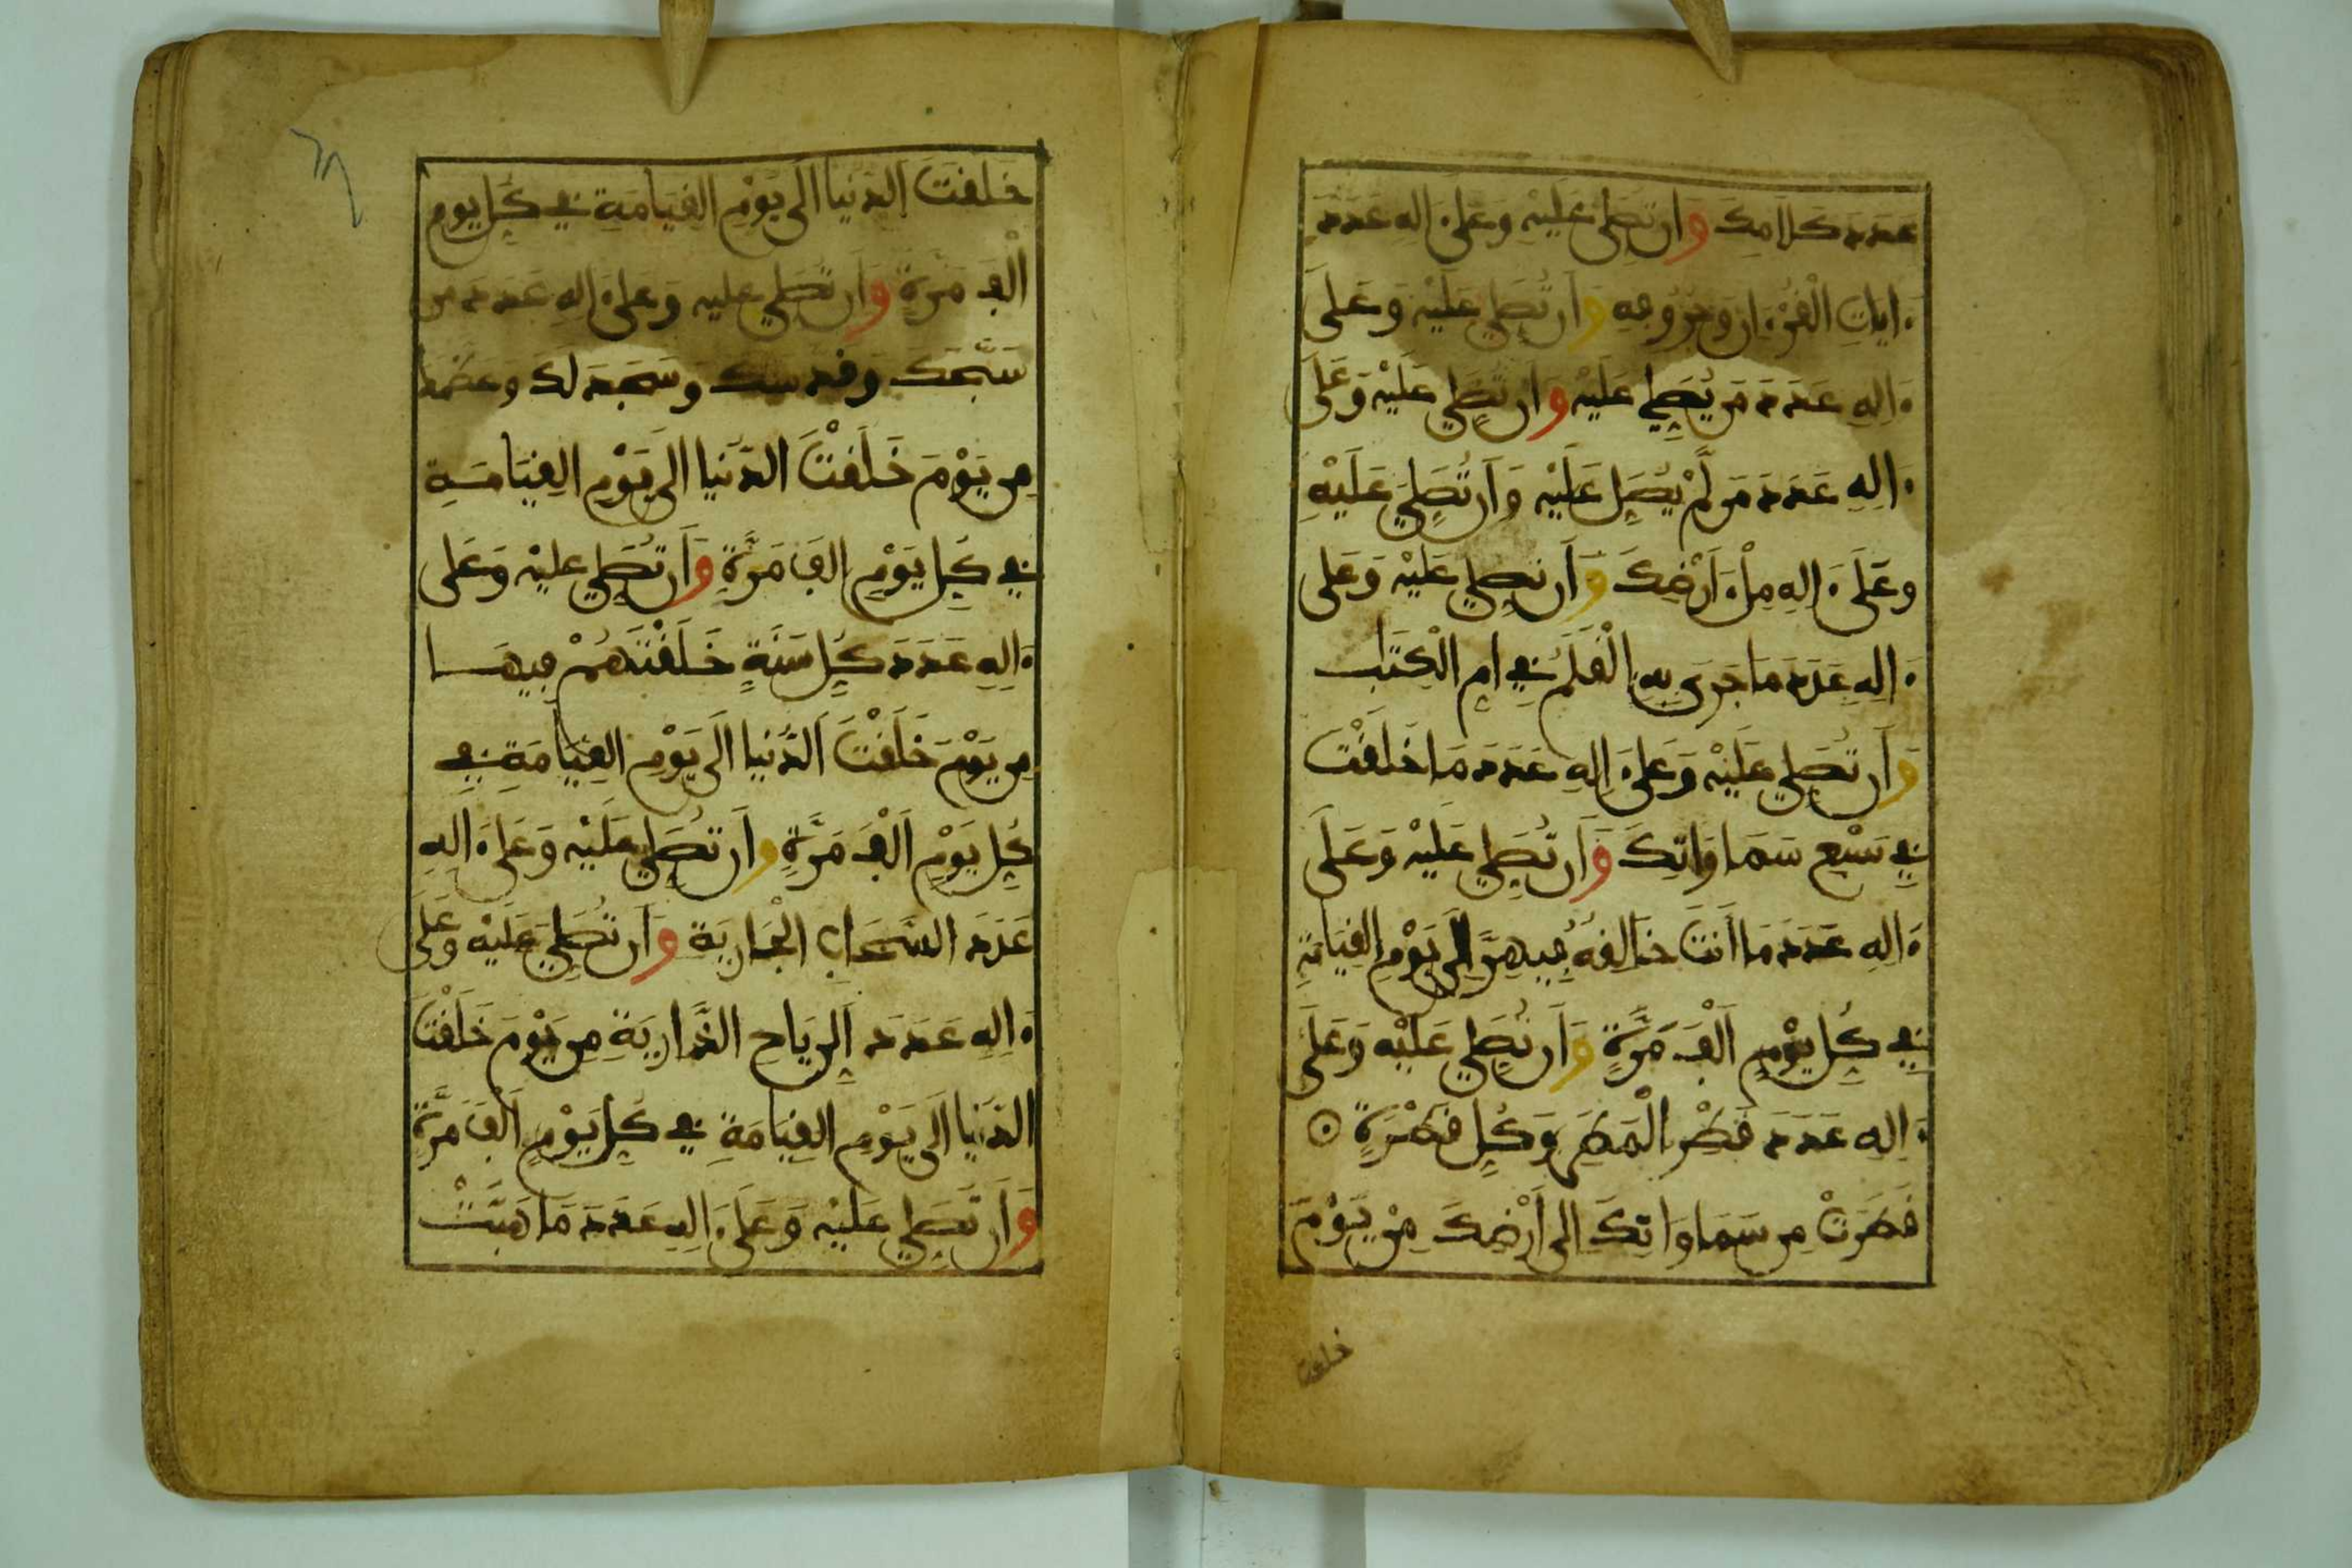 عَدَدَ كَلَامِكَ وَأَن تُصَلِّيَ عَلَيْهِ وَعَلَىٰ ءَالِهِ عَدَدَ
ءَايَاتِ الْقُرْءَانِ وَحُرُوفِهِ وَأَن تُصَلِّيَ عَلَيْهِ وَعَلَى
ءَالِهِ عَدَدَ مَن يُصَلِّي عَلَيْهِ وَأَن تُصَلِّيَ عَلَيْهِ وَعَلَى
ءَالِهِ عَدَدَ مَن لَّمْ يُصَلِّ عَلَيْهِ وَأَن تُصَلِّيَ عَلَيْهِ
وَعَلَىٰ ءَالِهِ مِلْءَ أَرْضِكَ وَأَن تُصَلِّيَ عَلَيْهِ وَعَلَى
ءَالِهِ عَدَدَ مَا جَرَىٰ بِهِ الْقَلَمُ فِي أُمِّ الْكِتَٰبِ
وَأَن تُصَلِّيَ عَلَيْهِ وَعَلَىٰ ءَالِهِ عَدَدَ مَا خَلَقْتَ
فِي سَبْعِ سَمَاوَاتِكَ وَأَن تُصَلِّيَ عَلَيْهِ وَعَلَى
ءَالِهِ عَدَدَ مَا أَنتَ خَالِقُهُ فِيهِنَّ إِلَىٰ يَوْمِ الْقِيَامَةِ
فِي كُلِّ يَوْمٍ أَلْفَ مَرَّةٍ وَأَن تُصَلِّيَ عَلَيْهِ وَعَلَى
ءَالِهِ عَدَدَ قَطْرِ الْمَطَرِ وَكُلِّ قَطْرَةٍ
قَطَرَتْ مِن سَمَاوَاتِكَ إِلَى أَرْضِكَ مِنْ يَوْمَ
خلقت
خَلَقْتَ الدُّنْيَا إِلَى يَوْمِ الْقِيَامَةِ فِي كُلِّ يَوْمٍ
أَلْفَ مَرَّةٍ وَأَن تُصَلِّيَ عَلَيْهِ وَعَلَىٰ ءَالِهِ عَدَدَ مَن
سَبَّحَكَ وَقَدَّسَكَ وَسَجَدَ لَكَ وَعَظَّمَكَ
مِن يَوْمَ خَلَقْتَ الدُّنْيَا إِلَى يَوْمِ الْقِيَامَةِ
فِي كُلِّ يَوْمٍ أَلْفَ مَرَّةٍ وَأَن تُصَلِّيَ عَلَيْهِ وَعَلَى
ءَالِهِ عَدَدَ كُلِّ سَنَةٍ خَلَقْتَهُمْ فِيهَا
مِن يَوْمَ خَلَقْتَ الدُّنْيَا إِلَى يَوْمِ الْقِيَامَةِ فِي
كُلِّ يَوْمٍ أَلْفَ مَرَّةٍ وَأَن تُصَلِّيَ عَلَيْهِ وَعَلَىٰ ءَالِهِ
عَدَدَ السَّحَابِ الْجَارِيَةِ وَأَن تُصَلِّيَ عَلَيْهِ وَعَلَى
ءَالِهِ عَدَدَ الرِّيَاحِ الذَّارِيَةِ مِن يَوْمَ خَلَقْتَ
الدُّنْيَا إِلَى يَوْمِ الْقِيَامَةِ فِي كُلِّ يَوْمٍ أَلْفَ مَرَّةٍ
وَأَن تُصَلِّيَ عَلَيْهِ وَعَلَىٰ ءَالِهِ عَدَدَ مَا هَبَّتْ